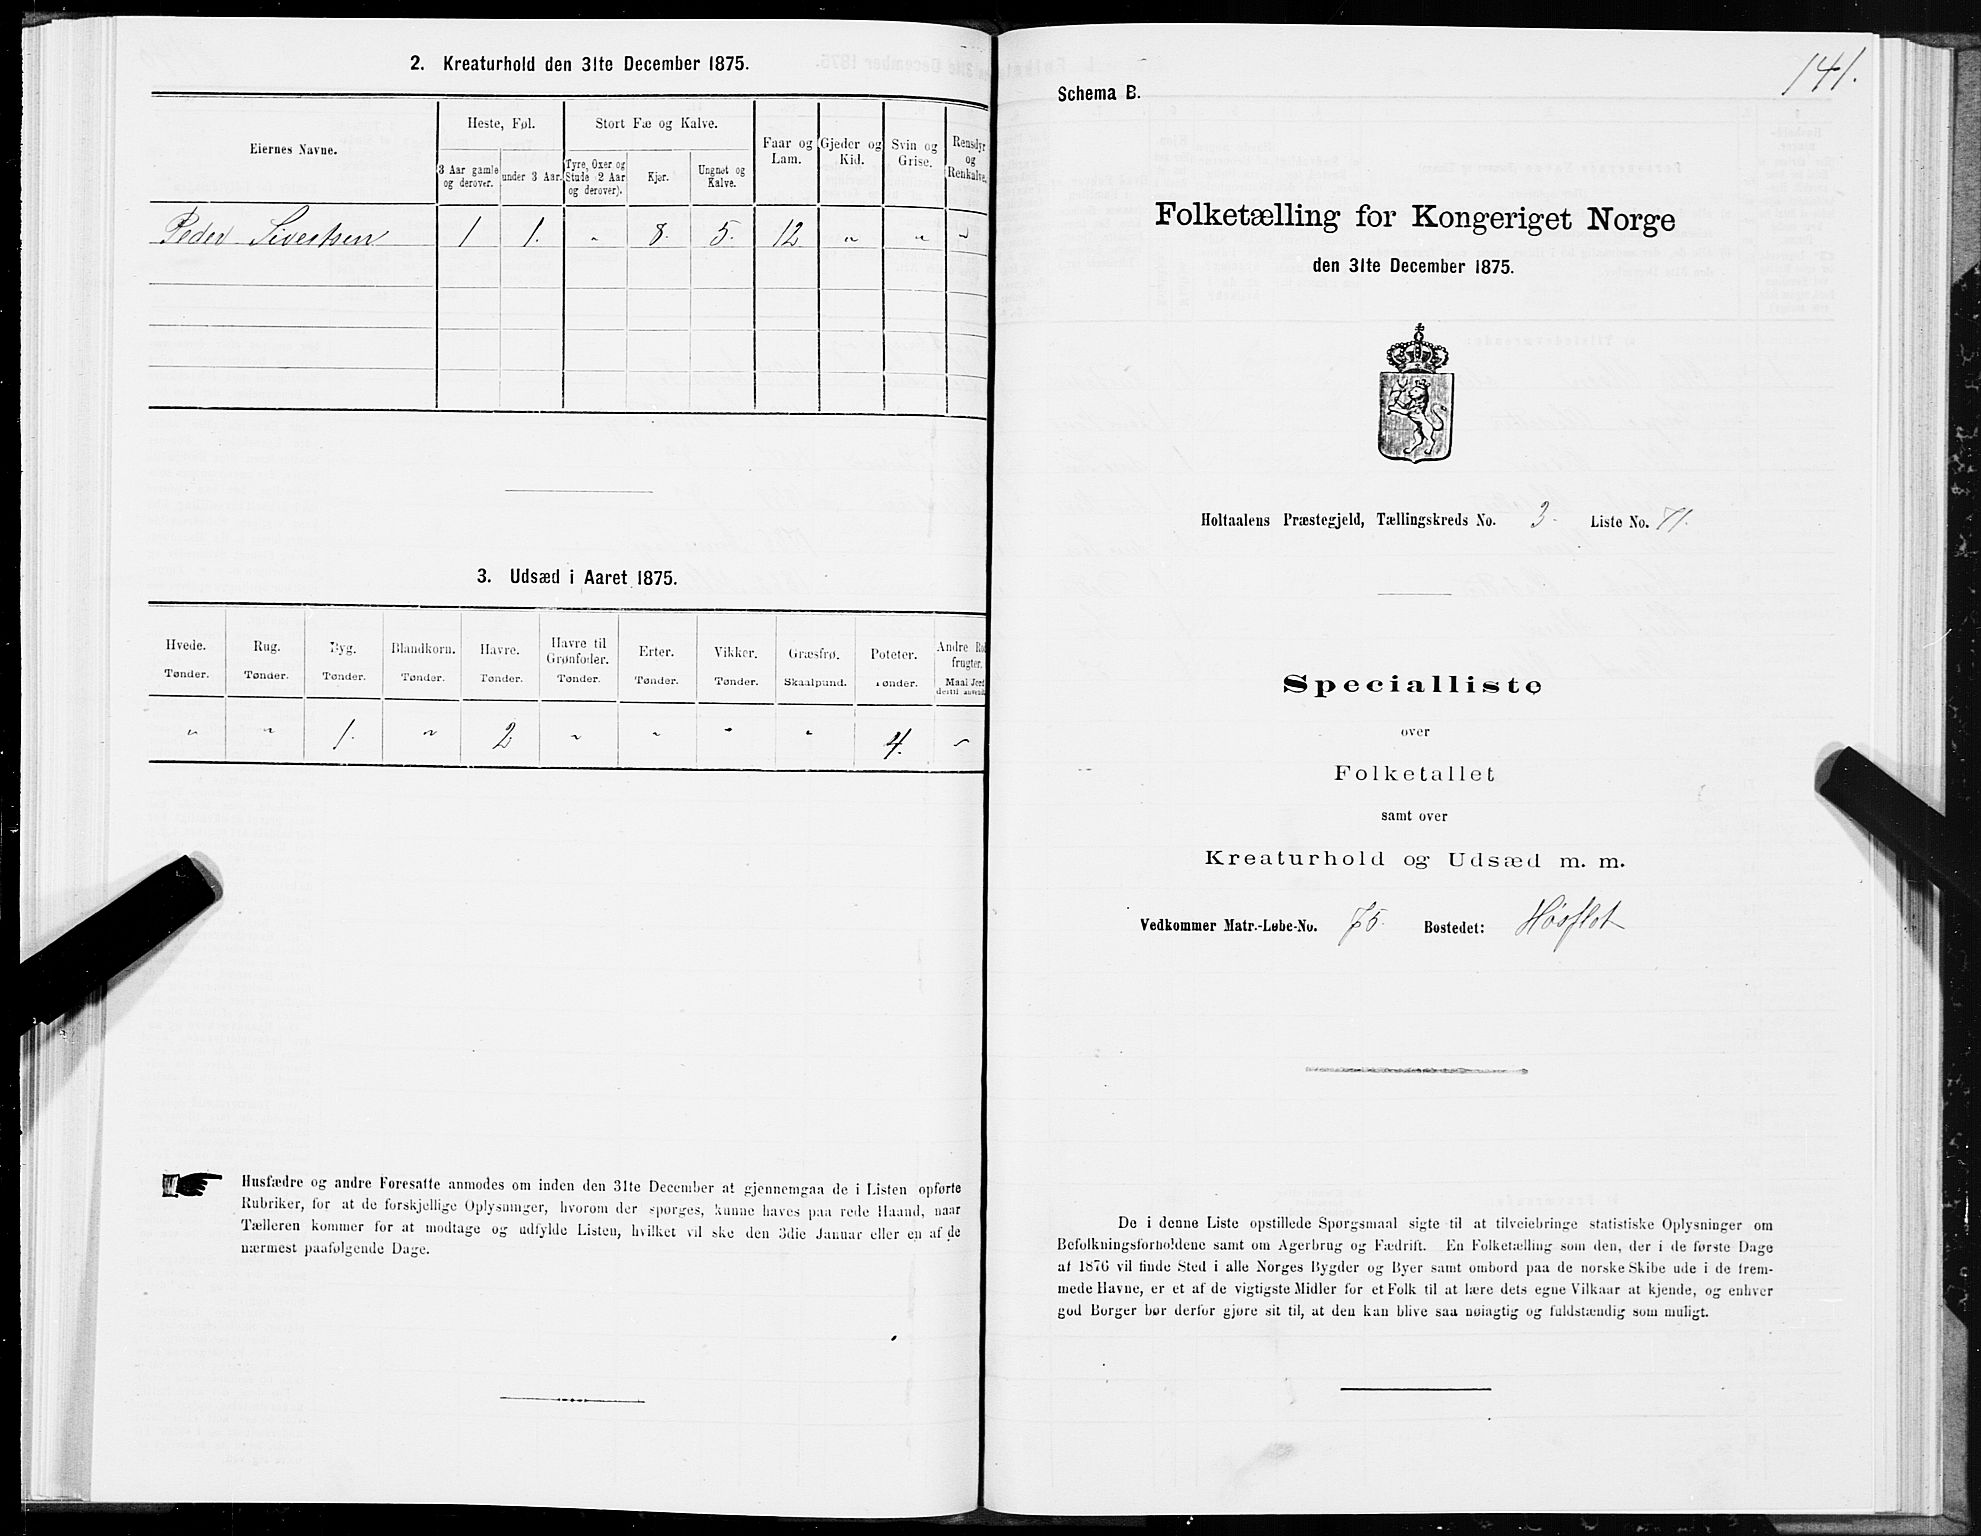 2. Kreaturhold den 31te December 1875.
Eiernes Navne.
Heste, Føl.
Stort Fæ og Kalve.
Faar og Lam.
Gjeder og Kid.
Svin og Grise.
Rensdyr og Renkalve.
3 Aar gamle og derover.
under 3 Aar.
Tyre, Oxer og Stude 2 Aar og derover).
Kjør.
Ungnøt og Kalve.
Peder Sivertsen 1 1. „ 8. 5. 12 „ „ „
3. Udsæd i Aaret 1875.
Hvede. Rug. Byg. Blandkorn. Havre. Havre til Grønfoder. Erter. Vikker. Græsfrø. Poteter. Andre Rodfrugter.
Tønder. Tønder. Tønder. Tønder. Tønder. Tønder. Tønder. Tønder. Skaalpund. Tønder. Maal Jord
„ „ 1. „ 2 „ „ „ „ 4. „
Husfædre og andre Foresatte anmodes om inden den 31te December at gjennemgaa de i Listen opførte
Rubriker, for at de forskjellige Oplysninger, hvorom der spørges, kunne haves paa rede Haand, naar
Tælleren kommer for at modtage og udfylde Listen, hvilket vil ske den 3die Januar eller en af de
nærmest paafølgende Dage.
141.
Schema B.
Folketælling for Kongeriget Norge
den 31te December 1875.
Holtaalens Præstegjeld, Tællingskreds No. 3. Liste No. 71.
Specialliste
over
Folketallet
samt over
Kreaturhold og Udsæd m. m.
Vedkommer Matr.-Løbe-No. 75. Bostedet: Høsflot
De i denne Liste opstillede Spørgsmaal sigte til at tilveiebringe statistiske Oplysninger om
Befolkningsforholdene samt om Agerbrug og Fædrift. En Folketælling som den, der i de første Dage
af 1876 vil finde Sted i alle Norges Bygder og Byer samt ombord paa de norske Skibe ude i de frem-
mede Havne, er et af de vigtigste Midler for et Folk til at lære dets egne Vilkaar at kjende, og enhver
god Borger bør derfor gjøre sit til, at den kan blive saa nøiagtig og fuldstændig som muligt.